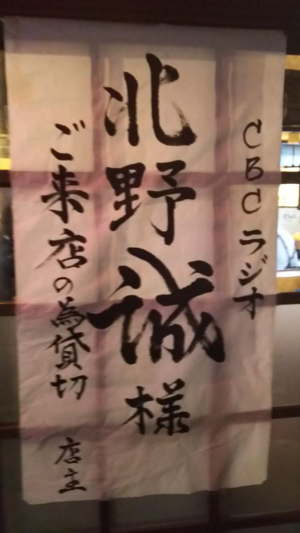 CBCラジオ
北野誠様
ご来店の為貸切
店主